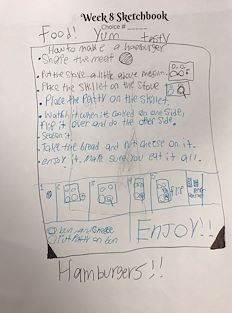 Week 8 Sketchbook
Choice #
Food! Yum tasty
How to make a hamburger
• Shape the meat
• Put the stove a little above medium.
• Place the skillet on the stove
• Place the Patty on the skillet.
• Watch it when it cooked on one side,
flip it over and do the other side.
• Season it
• Take the bread and put cheese on it.
• enjoy it. Make sure you eat it all.
flip
bun and cheese
Put Patty on bun
ENJOY!!
Hamburgers!!